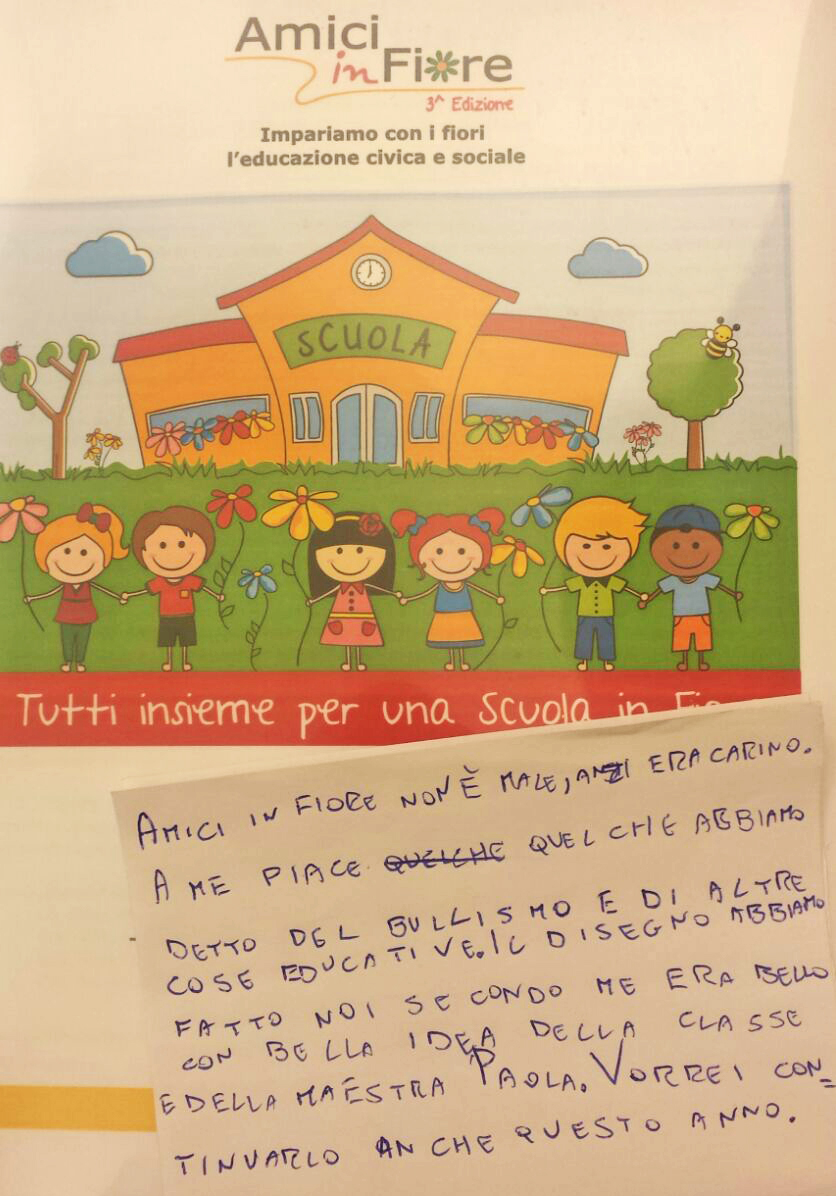 Amici
in Fiore
3^ Edizione
Impariamo con i fiori
l'educazione civica e sociale
SCUOLA
Tutti insieme per una Scuola in
AMICI IN FIORE NON È MALE, ANZI ERA CARINO.
A ME PIACE QUELCHE QUEL CHE ABBIAMO
DETTO DEL BULLISMO E DI ALTRE
COSE EDUCATIVE. IL DISEGNO ABBIAMO
FATTO NOI SECONDO ME ERA BELLO
CON BELLA IDEA DELLA CLASSE
E DELLA MAESTRA PAOLA. VORREI CON=
TINUARLO ANCHE QUESTO ANNO.